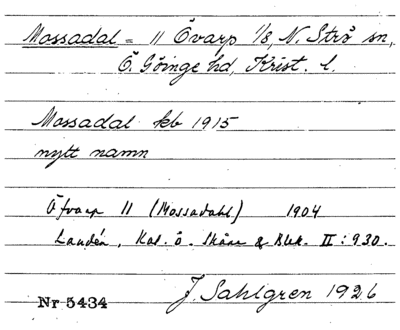 Mossadal = 11 Övarp 1/8, N. Strö sn,
Ö. Göinge hd, Krist. l.
Mossadal kb 1915
nytt namn
Öfvarp 11 (Mossadahl) 1904
Landén, Kat. ö. Skåne & Blek. II: 930.
J. Sahlgren 1926
Nr 5434